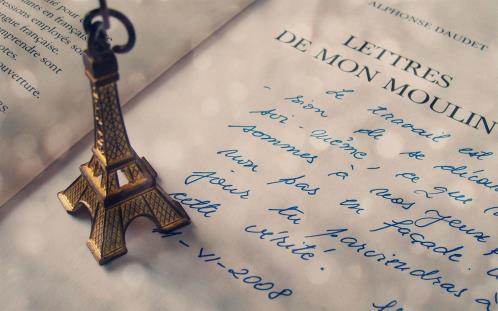 pour
expressions employés son
langue française.
comprendre sont
notes.
ouverture.
ALPHONSE DAUDET
LETTRES
DE MON MOULIN
Le travail est
- sion de se décou
soi-même, ce que n
sommes à nos yeux
non pas en façade.
jour tu parviendras à
cette vérité.
11-VI-2008